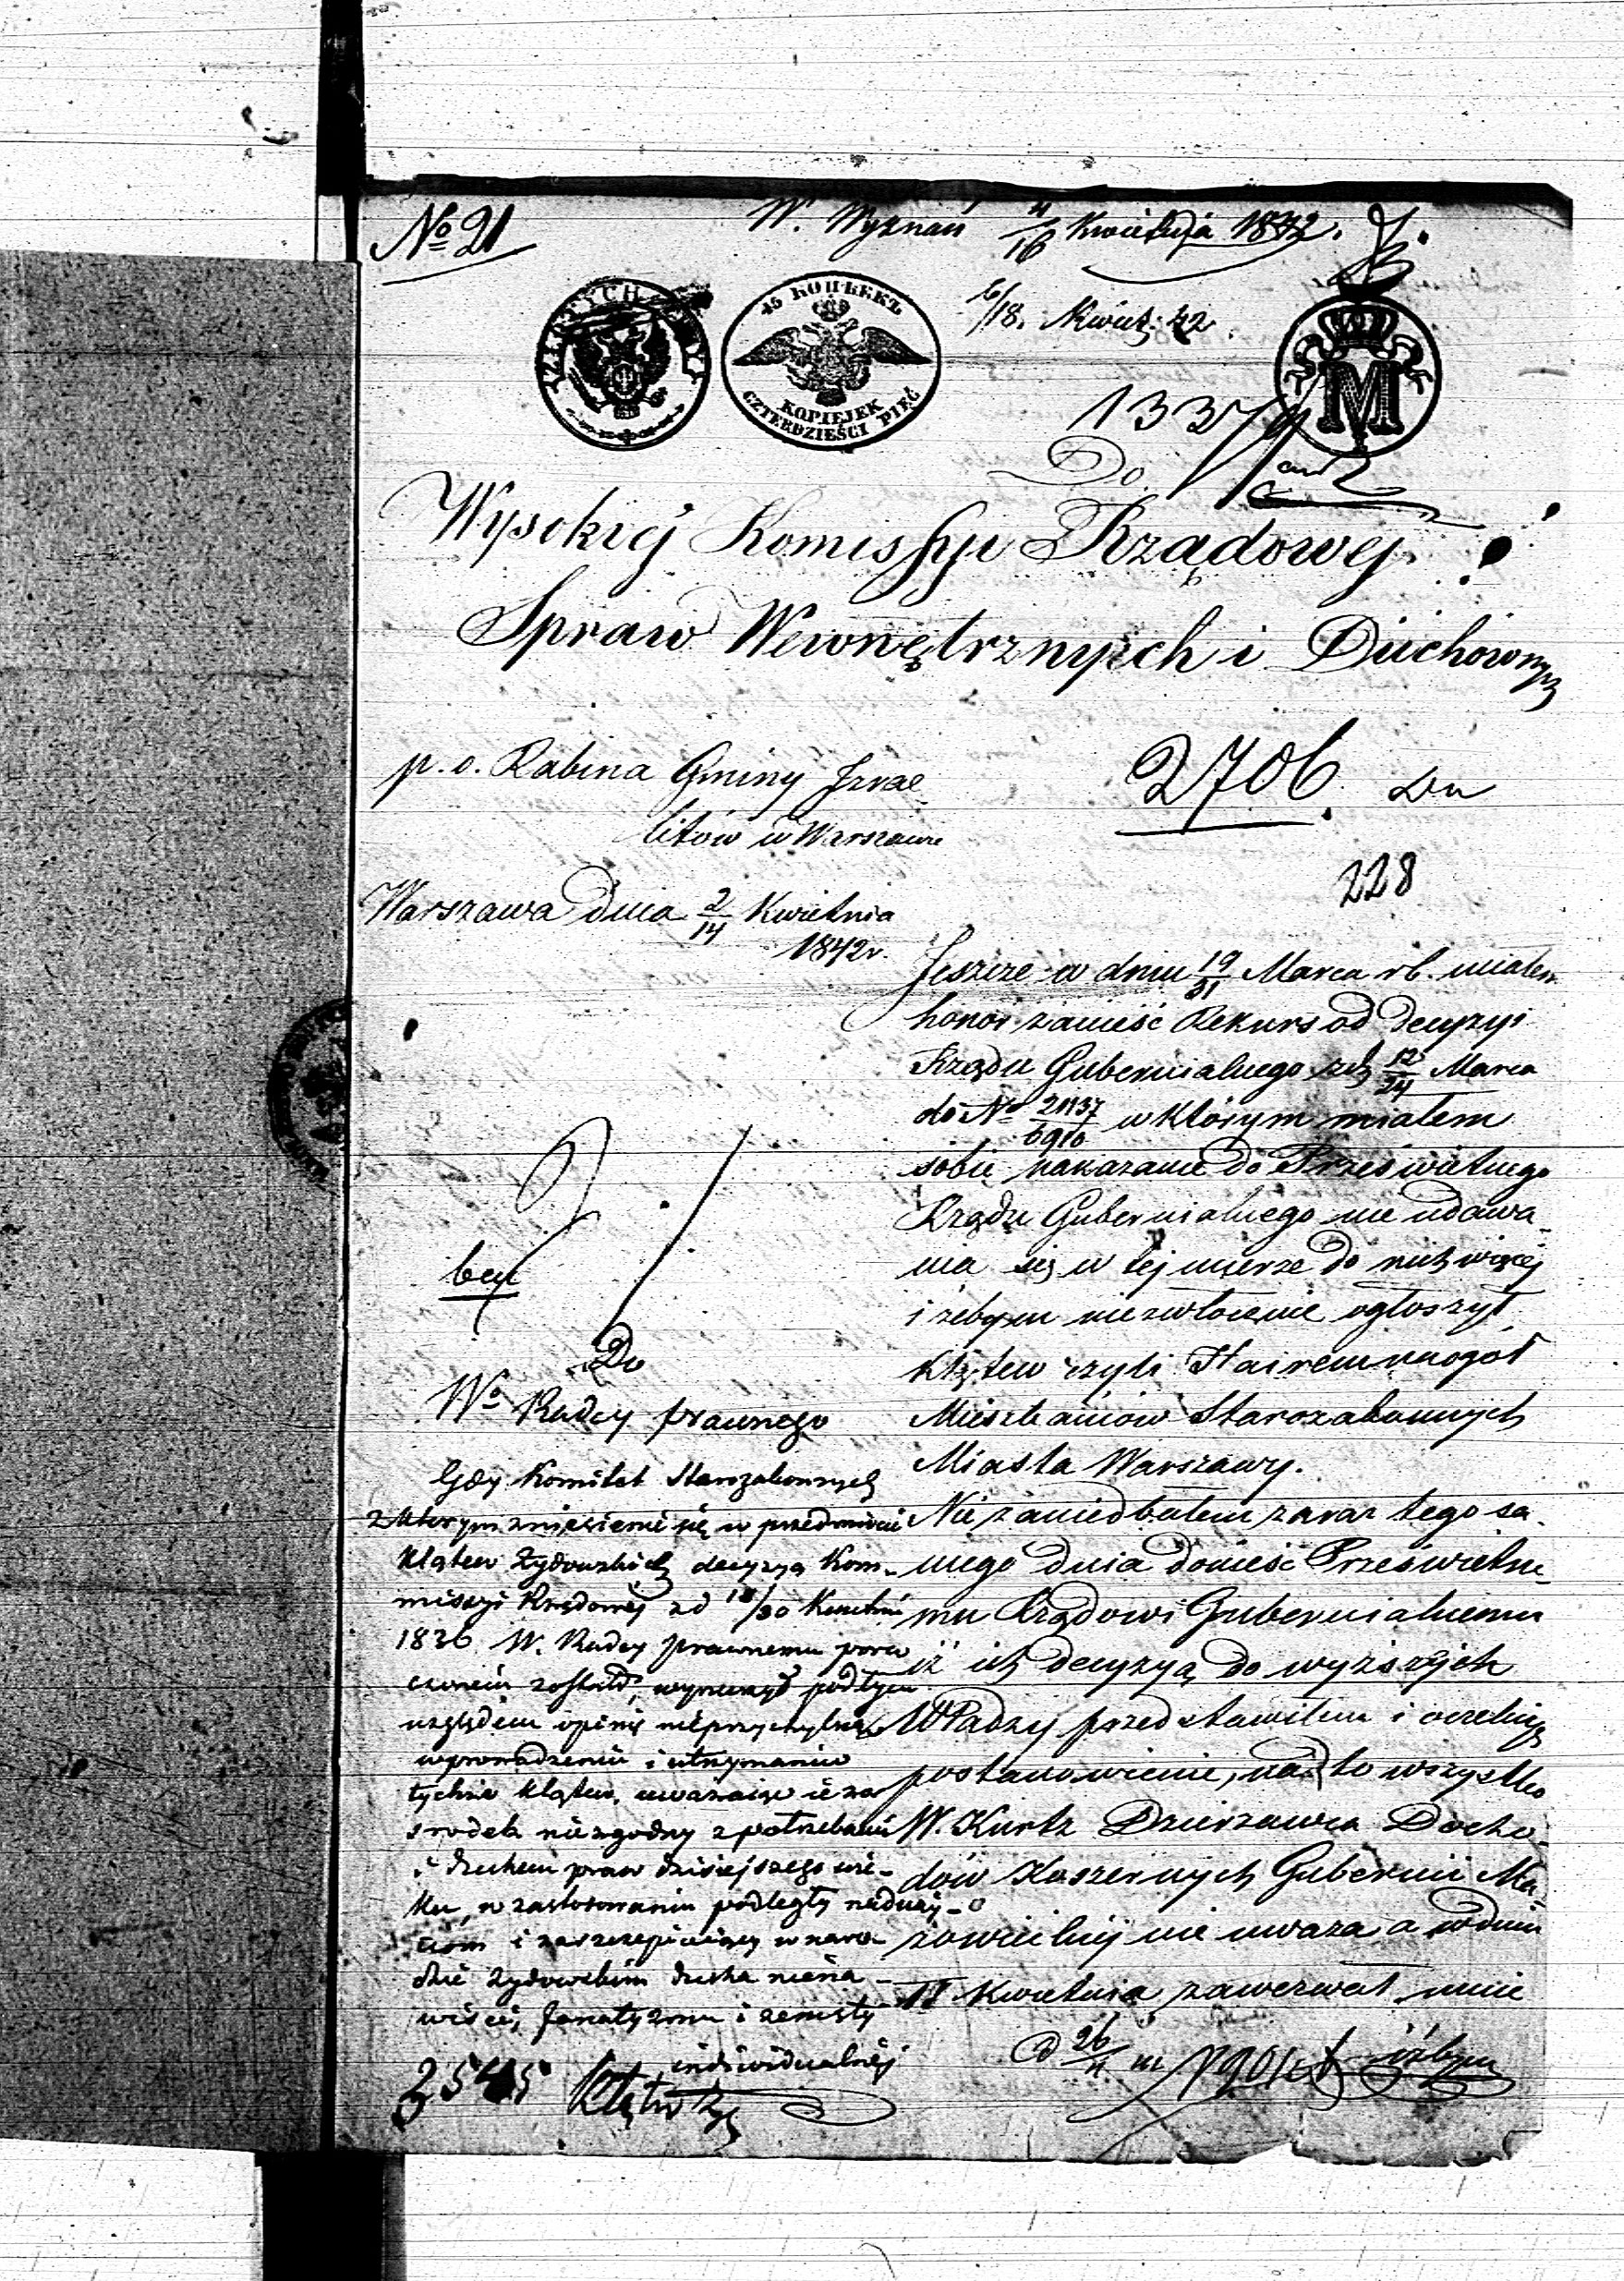 No 21
W. Wyznań 4/16 Kwietnia 1842.
6/18. Kwiet. 42.
ZŁOTYCH TRZY
45 КОПѢЕКЪ
KOPIEJEK
CZTERDZIEŚCI PIĘĆ
M
1337
Do
Wysokiej Komissyi Rządowej
Spraw Wewnętrznych i Duchownych
p. o. Rabina Gminy Izrae-
litów w Warszawie
2706.
228
Warszawa dnia 2/14 Kwietnia
1842 r.
Jeszcze w dniu 19/31 Marca rb. miałem
honor zanieść Rekurs od decyzyi
Rządu Gubernialnego z d. 12/24 Marca
do No 21137/6910 w którym miałem
sobie nakazane do Prześwietnego
Rządu Gubernialnego nie udawa-
nia się w tej mierze do nich więcej
i żebym niezwłocznie ogłosił
klątew czyli Hairem na ogół
Mieszkańców Starozakonnych
Miasta Warszawy.
Nie zaniedbałem zaraz tego sa-
mego dnia donieść Prześwietne-
mu Rządowi Gubernialnemu
iż ich decyzyą do wyższych
Władzy przedstawiłem i oczekuję
postanowienie, nad to wszystko
W. Kurtz Dzierżawca Docho-
dów Koszernych Gubernii Ma-
zowieckiej nie uważa a w dniu
11 Kwietnia zawezwał mnie
iżbym
Do
Wo Radcy prawnego
Gdy Komitet Starozakonnych
z którym zniesienie się w przedmiocie
klątew Żydowskich decyzyą Kom-
missyi Rządowej z d 18/30 Kwietnia
1836 W. Radcy prawnemu poru
czonem zostało, wynurzył pod tym
względem opinię nieprzychylną
wprowadzeniu i utrzymaniu
tychże klątew, uważając je za
środek niezgodny z potrzebami
i duchem praw dzisiejszego wie-
ku, w zastosowaniu podległy naduży-
ciom i zaszczepiający w naro-
dzie żydowskim ducha niena-
wiści, fanatyzmu i zemsty
indiwidualnéj